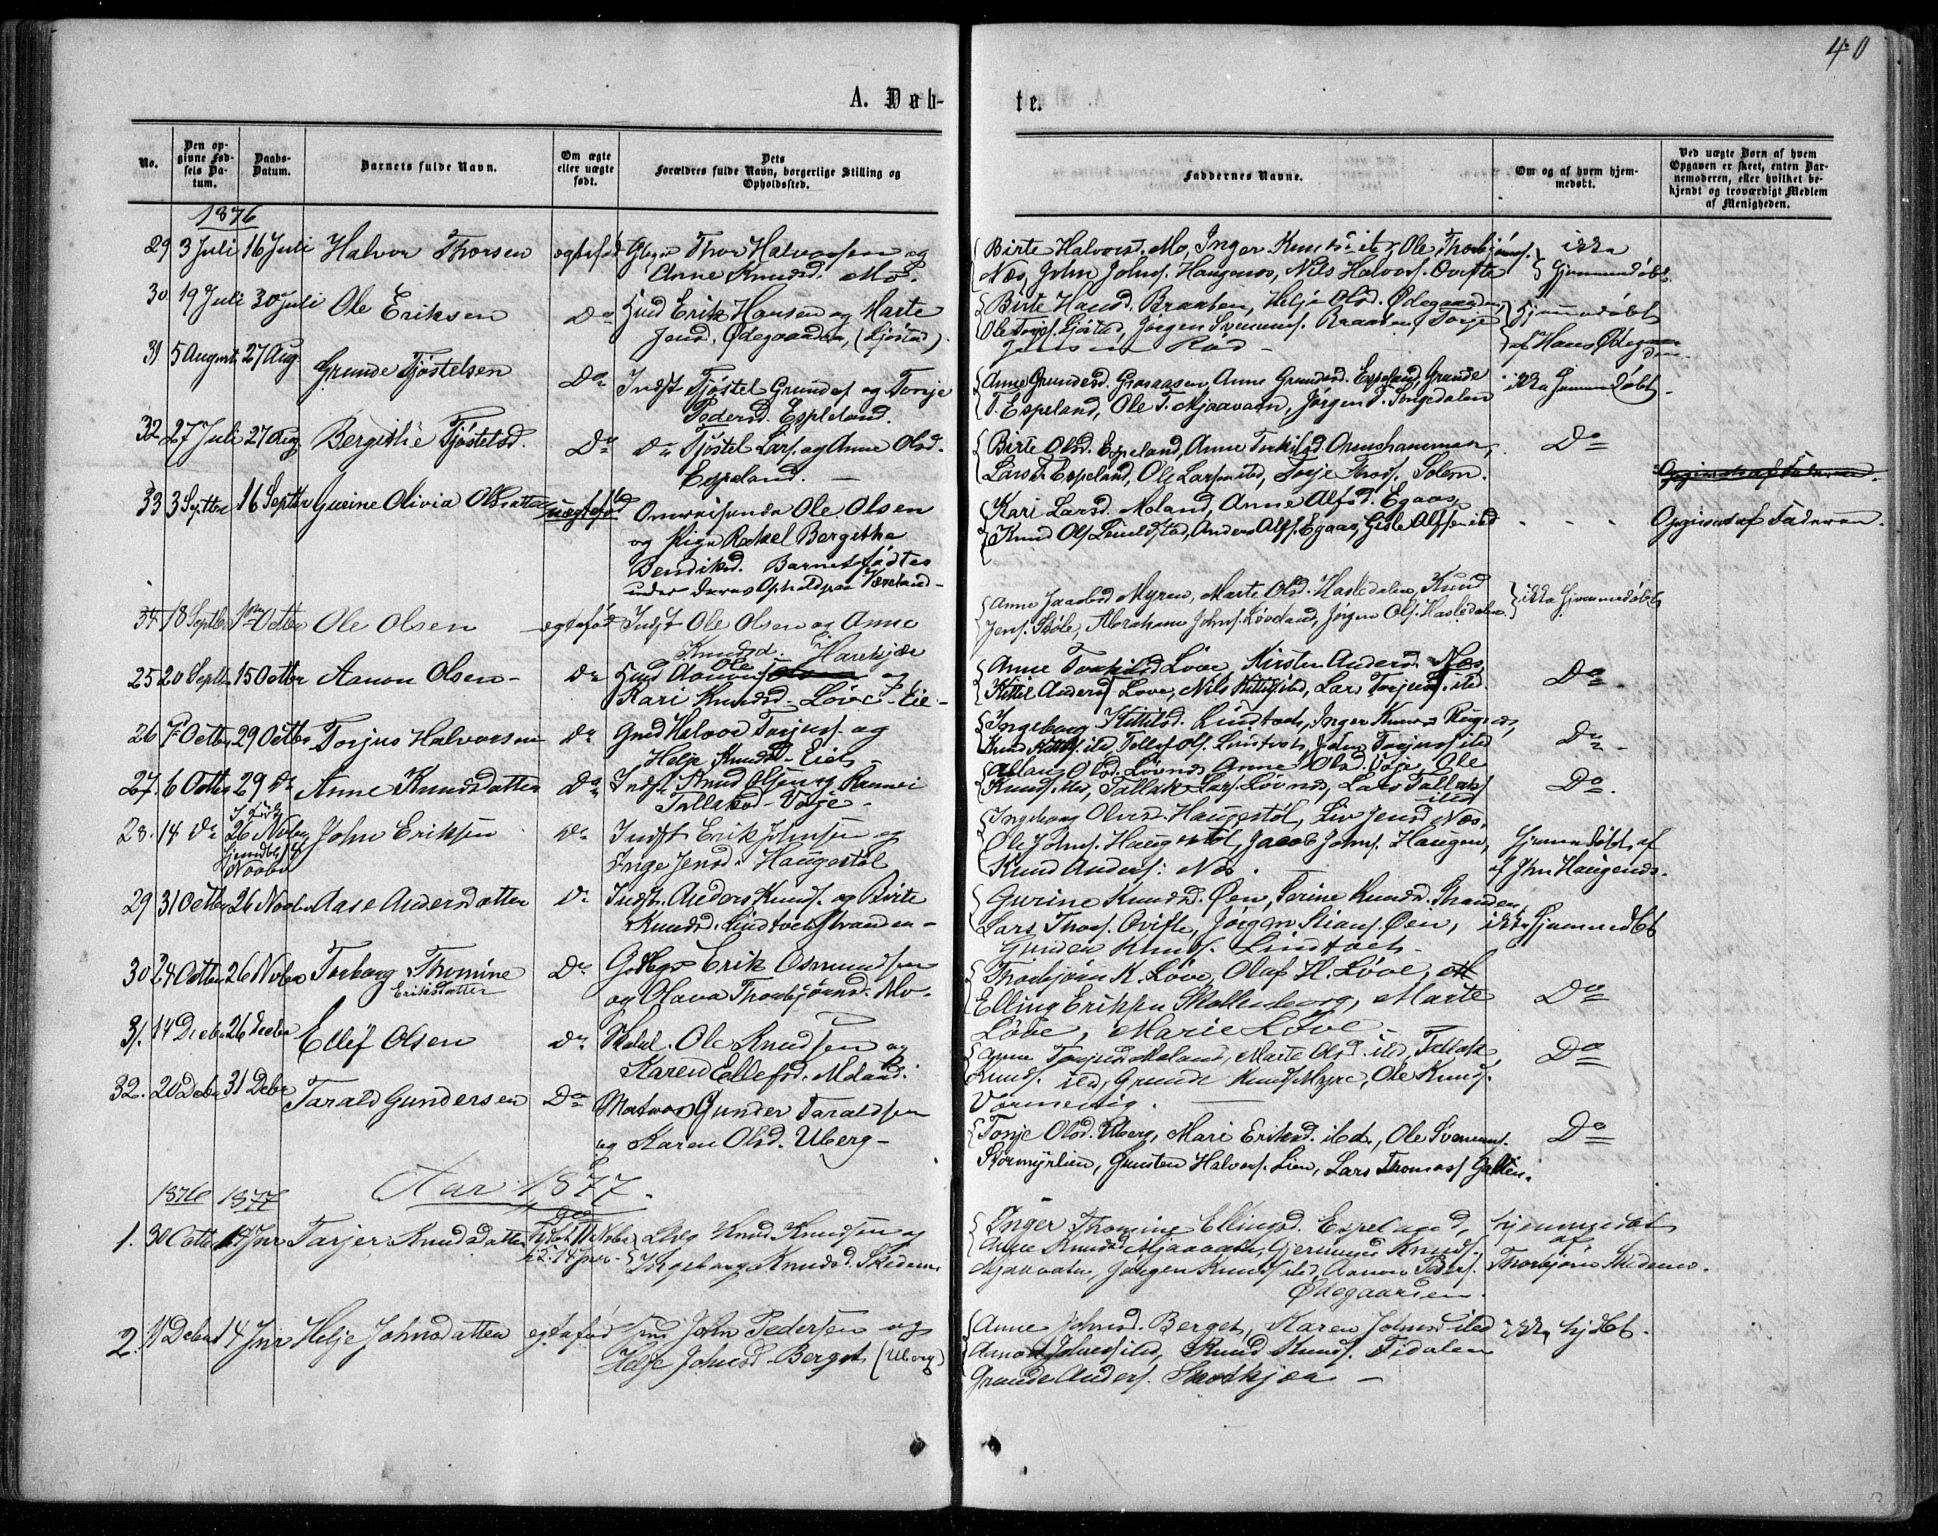 40
A. Døb-
te.
No.
Den opgivne Fødsels Datum.
Daabs-Datum.
Barnets fulde Navn.
Om ægte eller uægte født.
Dets Forældres fulde Navn, borgerlige Stilling og Opholdssted.
Faddernes Navne.
Om og af hvem hjemmedøbt.
Ved uægte Børn af hvem Opgaven er skeet, enten Barnemoderen, eller hvilket bekjendt og troværdigt Medlem af Menigheden.
1876
29 3 Juli 16 Juli Halvor Thorsen egtefød Thor Halvorsen og
Anne Knudsd. Mo.
Birte Halvorsd. Mo, Inger Knudsd. ited, Ole Thorbjörns.
Næs, John Johns. Haugenes, Nils Halvors. Ovrfte
ikke
Hjemmedøbt
30 19 Juli 30 Juli Ole Eriksen Do Husd Erik Hansen og Marte
Jensd. Ødegaarden, (Ljøstad).
Birte Hansd. Braaten, Helje Olsd. Ødegaarden,
Ole Torjes. Ljøstad, Jörgen Svennungs. Braaten, Torje
Jensen Rød -
Hjemmedøbt
af Hans Ødegaarden.
31 5 August 27 Aug. Grunde Tjöstelsen Do Indst Tjöstel Grundes. og Tonje
Pedersd. Espeland.
Anne Grundesd. Grosaasen, Anne Grundesd. Espeland, Grunde
T. Espeland, Ole T. Mjaavatn, Jörgen T. Tongedalen
ikke Hjemmedöbt
32 27 Juli 27 Aug Bergithe Tjöstelsd. Do Do Tjöstel Lars. og Anne Olsd.
Espeland. -
Birte Olsd. Espeland, Anne Terkilsd.
Lars T. Espeland, Ole Larsen ited, Torje Thors. Solem.
Do
33 3 Septbr 16 Septbr Gurine Olivia Olsdatter uægtefød Omreisende Ole Olsen
og Pige Rakel Bergithe
Bendiksd. Barnet fødtes
under deres Ophold paa Væreland -
Kari Larsd. Moland, Anne Alfsd. Egaas,
Knud Ols. Lindstad, Anders Alfs. Egaas, Gisle Alfsen ited
- - -
Opgivet af Faderen.
Opgivet af Faderen.
34 18 Septbr 1ste Octbr Ole Olsen egtefød Indst Ole Olsen og Anne
Knudsd. Harekjær
Anne Jacobsd. Myren, Marte Olsd. Hasledalen, Knud
Jens. Støle, Abraham Johns. Løvdal, Jörgen Ols. Hasledalen.
ikke Hjemmedøbt
25 20 Septbr 15 Octbr Aanon Olsen - Do Husd Ole Aanons. og
Kari Knudsd. Löve Eie -
Anne Torkilsd. Löve, Kirsten Andersd. Næs,
Kittel Anders. Løve, Nils Kittels. ited, Lars Torjuss. ited.
Do
26 7 Octbr 29 Octbr Torjus Halvorsen Do Gmd Halvor Torjus. og
Helje Knudsd. Eiet
Ingeborg Kittilsd. Lindtveit, Inger Knudsd.
Knud Kittils. ited, Tallef Ols. Lindtveit, John Torjuss. ited
Do
27. 6 Octbr 29 Do Anne Knudsdatter Do Indst Knud Olsen og Rannei
Tallaksd. Voje -
Aslaug Olsd. Løvnes, Anne Olsd. Voje, Ole
Knuds. ited, Tallak Lars. Løvnes, Lars Tallaks.
ited
Do.
28. 14 Do 26 Novbr John Eriksen Do Indst Erik Johnsen og
Inge Jensd. Haugestöl
Ingeborg Olsd. Haugestöl, Liv Jensd. Næs,
Ole Johns. Haugestöl, Jacob Johns. Haugen,
Knud Anders. Næs.
Hjemmedöbt af
af John Haugenes.
29 31 Octbr 26 Novbr Aase Andersdatter Do Indst. Anders Knuds. og Birte
Knudsd. Lindtveitstranden -
Gurine Knudsd. Øen, Serine Knudsd. Stranden,
Lars Thors. Ovrfte, Jörgen Stians. Øen,
Gunder Knuds. Lindtveit -
ikke Hjemmedöbt
30 24 Octbr 26 Novbr Torborg Thomine
Eriksdatter
Do Erik Osmundsen
og Olava Thorbjörnsd. Mo -
Thorbjörn K. Löve, Olaf H. Löve,
Elling Eriksen Skollenborg, Marte
Löve, Marie Löve -
Do
31. 14 Decbr 26 Decbr Ellef Olsen Do Skolel. Ole Knudsen og
Karen Ellefsd. Moland.
Anne Torjusd. Moland, Marte Olsd. ited, Tallak
Knuds. ited, Grunde Knuds. Myre, Ole Knuds.
Vormevig. -
Do
32. 20 Decbr 31 Decbr Tarald Gundersen Do Matros Gunder Taraldsen
og Karen Olsd. Uberg -
Tonje Olsd. Uberg, Mari Eriksd. ited., Ole Svennungs.
Stormyrlien, Gunsten Halvors. Lien, Lars Thomass. Galten.
Do
Aar 1877.
1876 1877
1. 30 Octbr 14 Jnr Tarjer Knudsdatter Knud Knudsen og
Ingeborg Knudsd. Skedemo
Inger Thomine Ellingsd. Espeland,
Anne Knudsd. Mjaavatn, Gjermund Knuds.
Mjaavatn, Jørgen Knuds. ited, Aanon Peders.
Ødegaarden.
hjemmedøbt
af
Thorbjörn Skedemo.
2. 1 Decbr 14 Jnr Helje Johnsdatter egtefød Husd John Pedersen og
Helje Johnsd. Berget (Uberg)
Anne Johnsd. Berget, Karen Johnsd. ited
Johns. ited, Knud Knuds. Fidalen
Grunde Anders. Skotkjær -
ikke hjdbt.